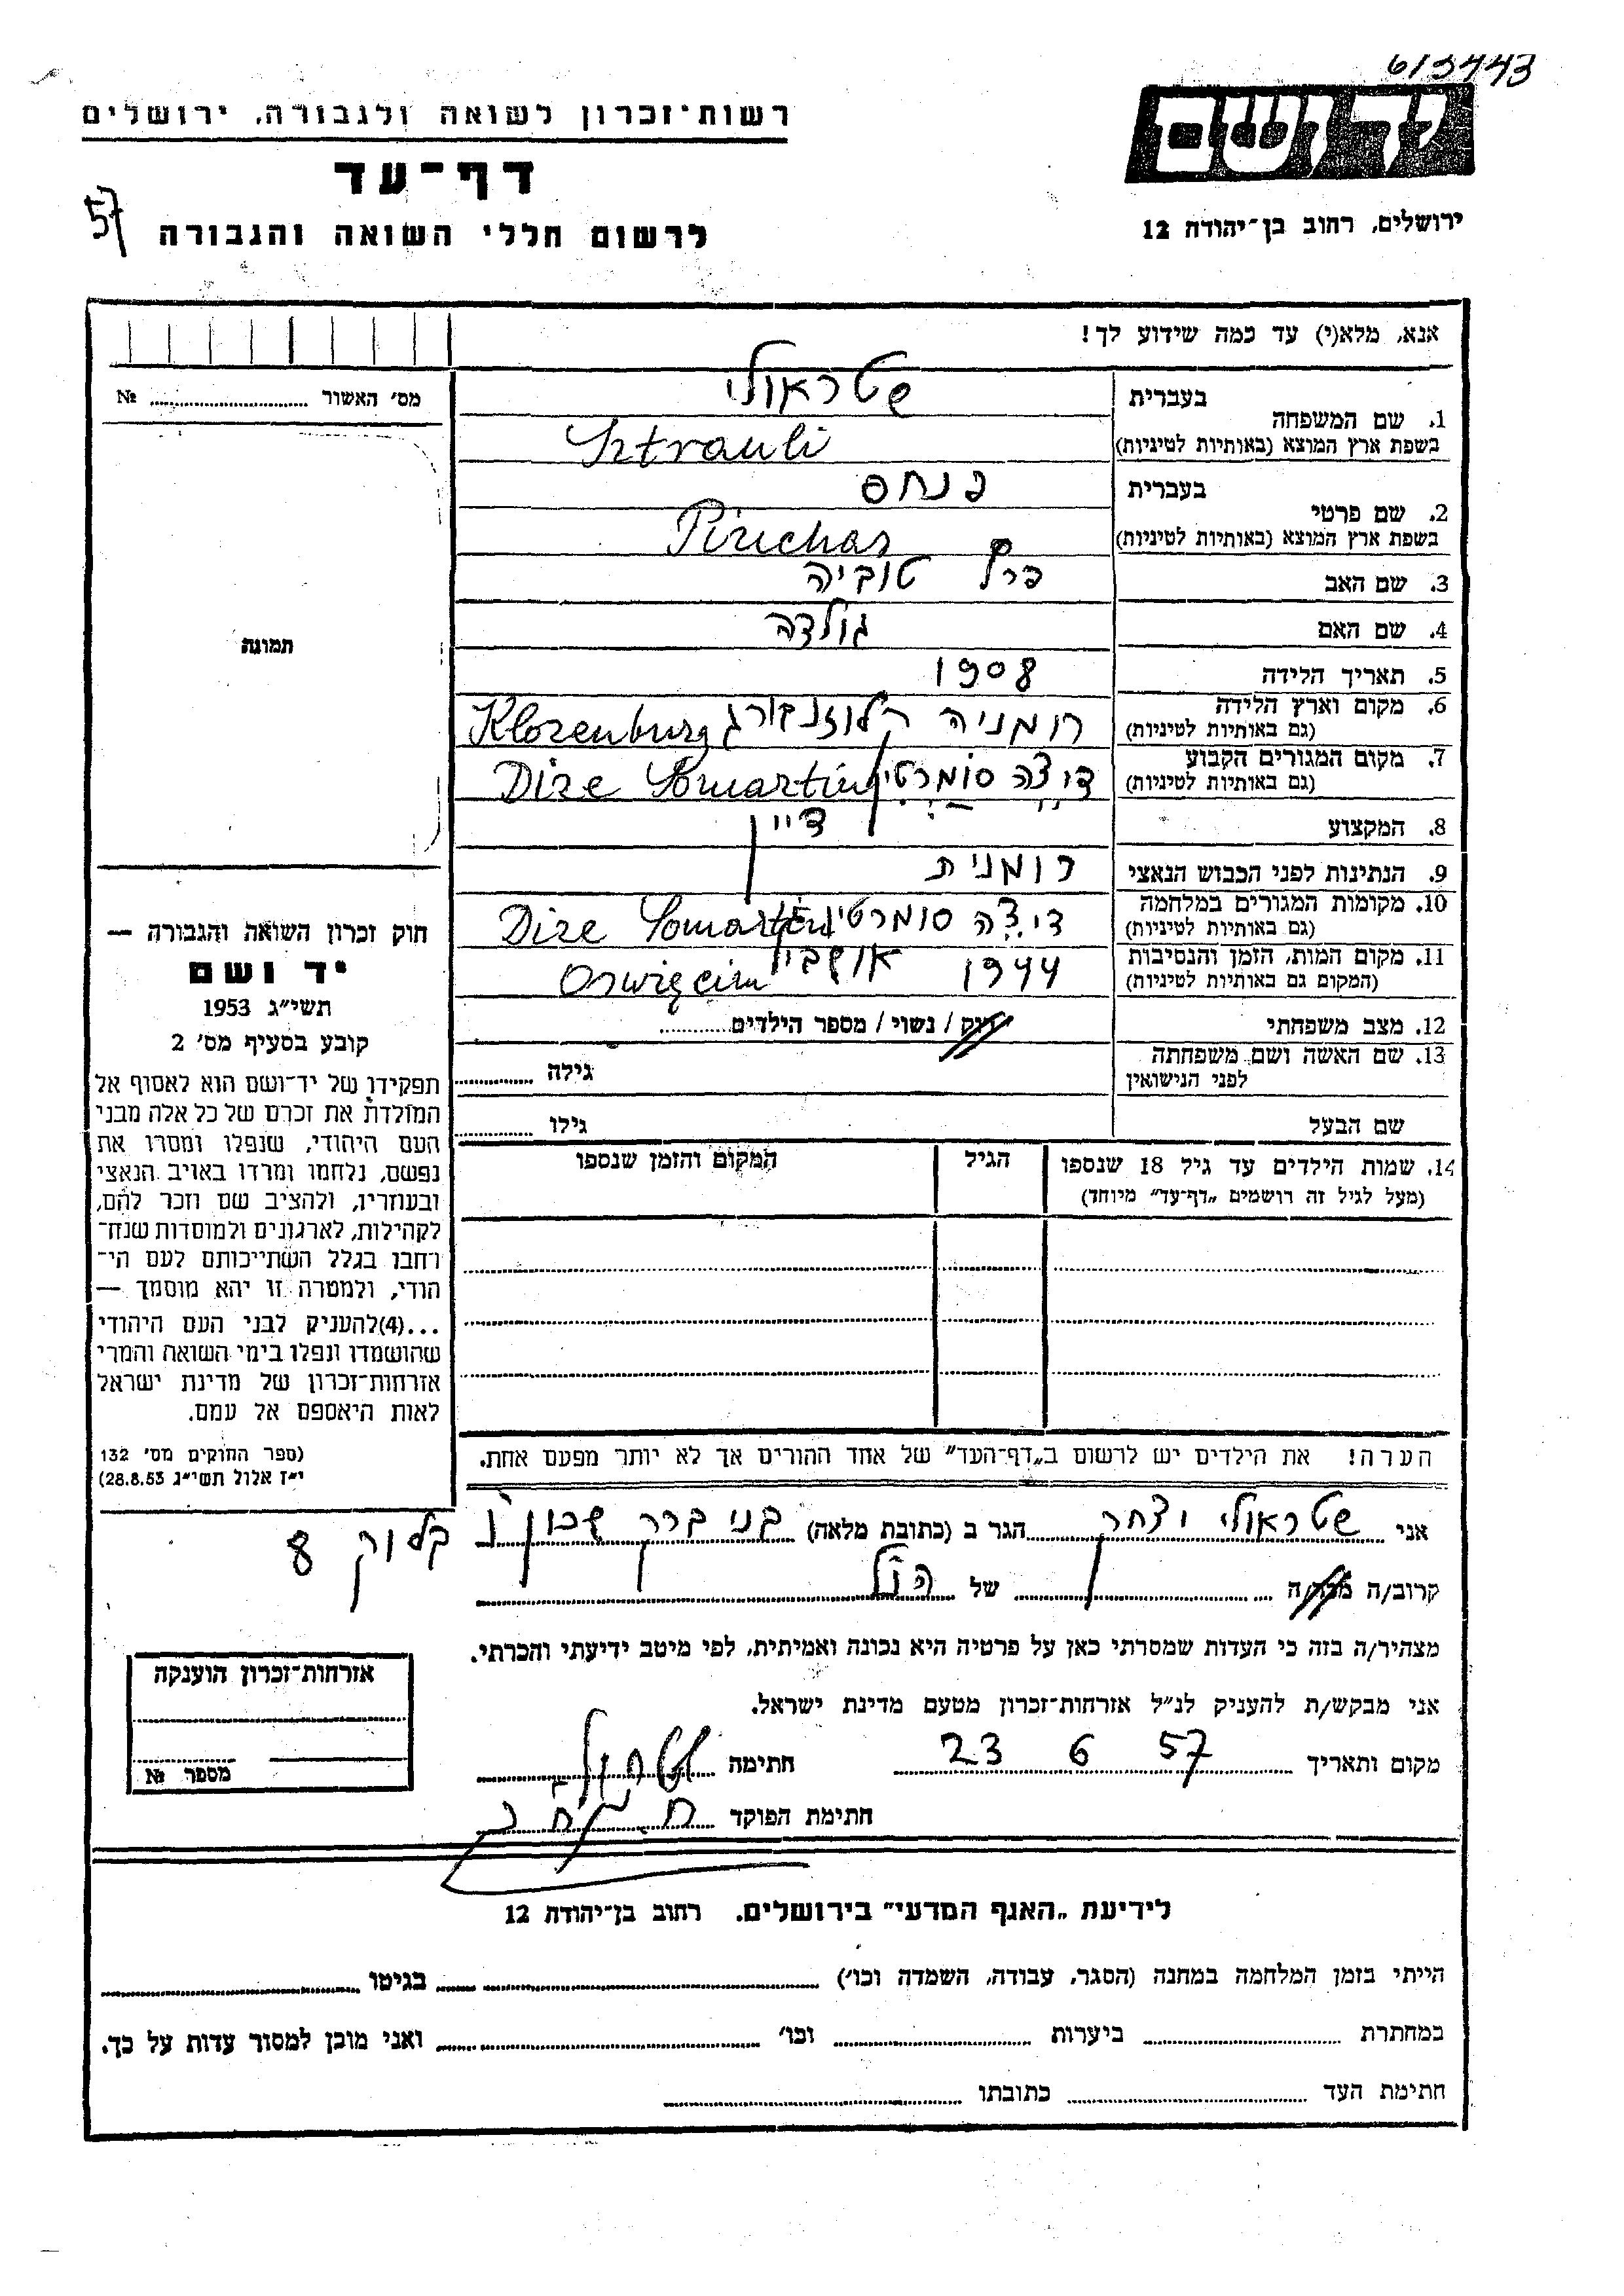 613443
יד ושם
רשות־זכרון לשואה ולגבורה, ירושלים
דף־עד
לרשום חללי השואה והגבורה
57
ירושלים, רחוב בן־יהודה 12
אנא, מלא(י) עד כמה שידוע לך!
מס׳ האשור № 
תמונה
1. שם המשפחה בעברית שטראולי
בשפת ארץ המוצא (באותיות לטיניות) Sztrauli
2. שם פרטי בעברית פנחס
בשפת ארץ המוצא (באותיות לטיניות) Pinchas
3. שם האב פרץ טוביה
4. שם האם גולדה
5. תאריך הלידה 1908
6. מקום וארץ הלידה (גם באותיות לטיניות) רומניה קלוזנבורג Klozenburg
7. מקום המגורים הקבוע (גם באותיות לטיניות) דיצה סומרטין Dize Somartin
8. המקצוע דיין
9. הנתינות לפני הכבוש הנאצי רומנית
10. מקומות המגורים במלחמה (גם באותיות לטיניות) דיצה סומרטין Dize Somartin
11. מקום המות, הזמן והנסיבות (המקום גם באותיות לטיניות) 1944 Oswięcim
12. מצב משפחתי רוק / נשוי / מספר הילדים
13. שם האשה ושם משפחתה לפני הנישואין גילה
שם הבעל גילו
14. שמות הילדים עד גיל 18 שנספו הגיל המקום והזמן שנספו
(מעל לגיל זה רושמים „דף־עד” מיוחד)
הערה! את הילדים יש לרשום ב„דף־העד” של אחד ההורים אך לא יותר מפעם אחת.
חוק זכרון השואה והגבורה —
יד ושם
תשי״ג 1953
קובע בסעיף מס׳ 2
תפקידו של יד־ושם הוא לאסוף אל
המולדת את זכרם של כל אלה מבני
העם היהודי, שנפלו ומסרו את
נפשם, נלחמו ומרדו באויב הנאצי
ובעוזריו, ולהציב שם וזכר להם,
לקהילות, לארגונים ולמוסדות שנח־
רבו בגלל השתייכותם לעם הי־
הודי, ולמטרה זו יהא מוסמך —
...(4)להעניק לבני העם היהודי
שהושמדו ונפלו בימי השואה והמרי
אזרחות־זכרון של מדינת ישראל
לאות היאספם אל עמם.
(ספר החוקים מס׳ 132
י״ז אלול תשי״ג 28.8.53)
אני שטראולי הגר ב (כתובת מלאה) בני ברק שכון ו בלוק 8
קרוב/ה מכר/ה של
מצהיר/ה בזה כי העדות שמסרתי כאן על פרטיה היא נכונה ואמיתית, לפי מיטב ידיעתי והכרתי.
אני מבקש/ת להעניק לנ״ל אזרחות־זכרון מטעם מדינת ישראל.
מקום ותאריך 23 6 57 חתימה
חתימת הפוקד
אזרחות־זכרון הוענקה
מספר №
לידיעת „האגף המדעי” בירושלים. רחוב בן־יהודה 12
הייתי בזמן המלחמה במחנה (הסגר, עבודה, השמדה וכו׳) בגיטו
במחתרת ביערות וכו׳ ואני מוכן למסור עדות על כך.
חתימת העד כתובתו